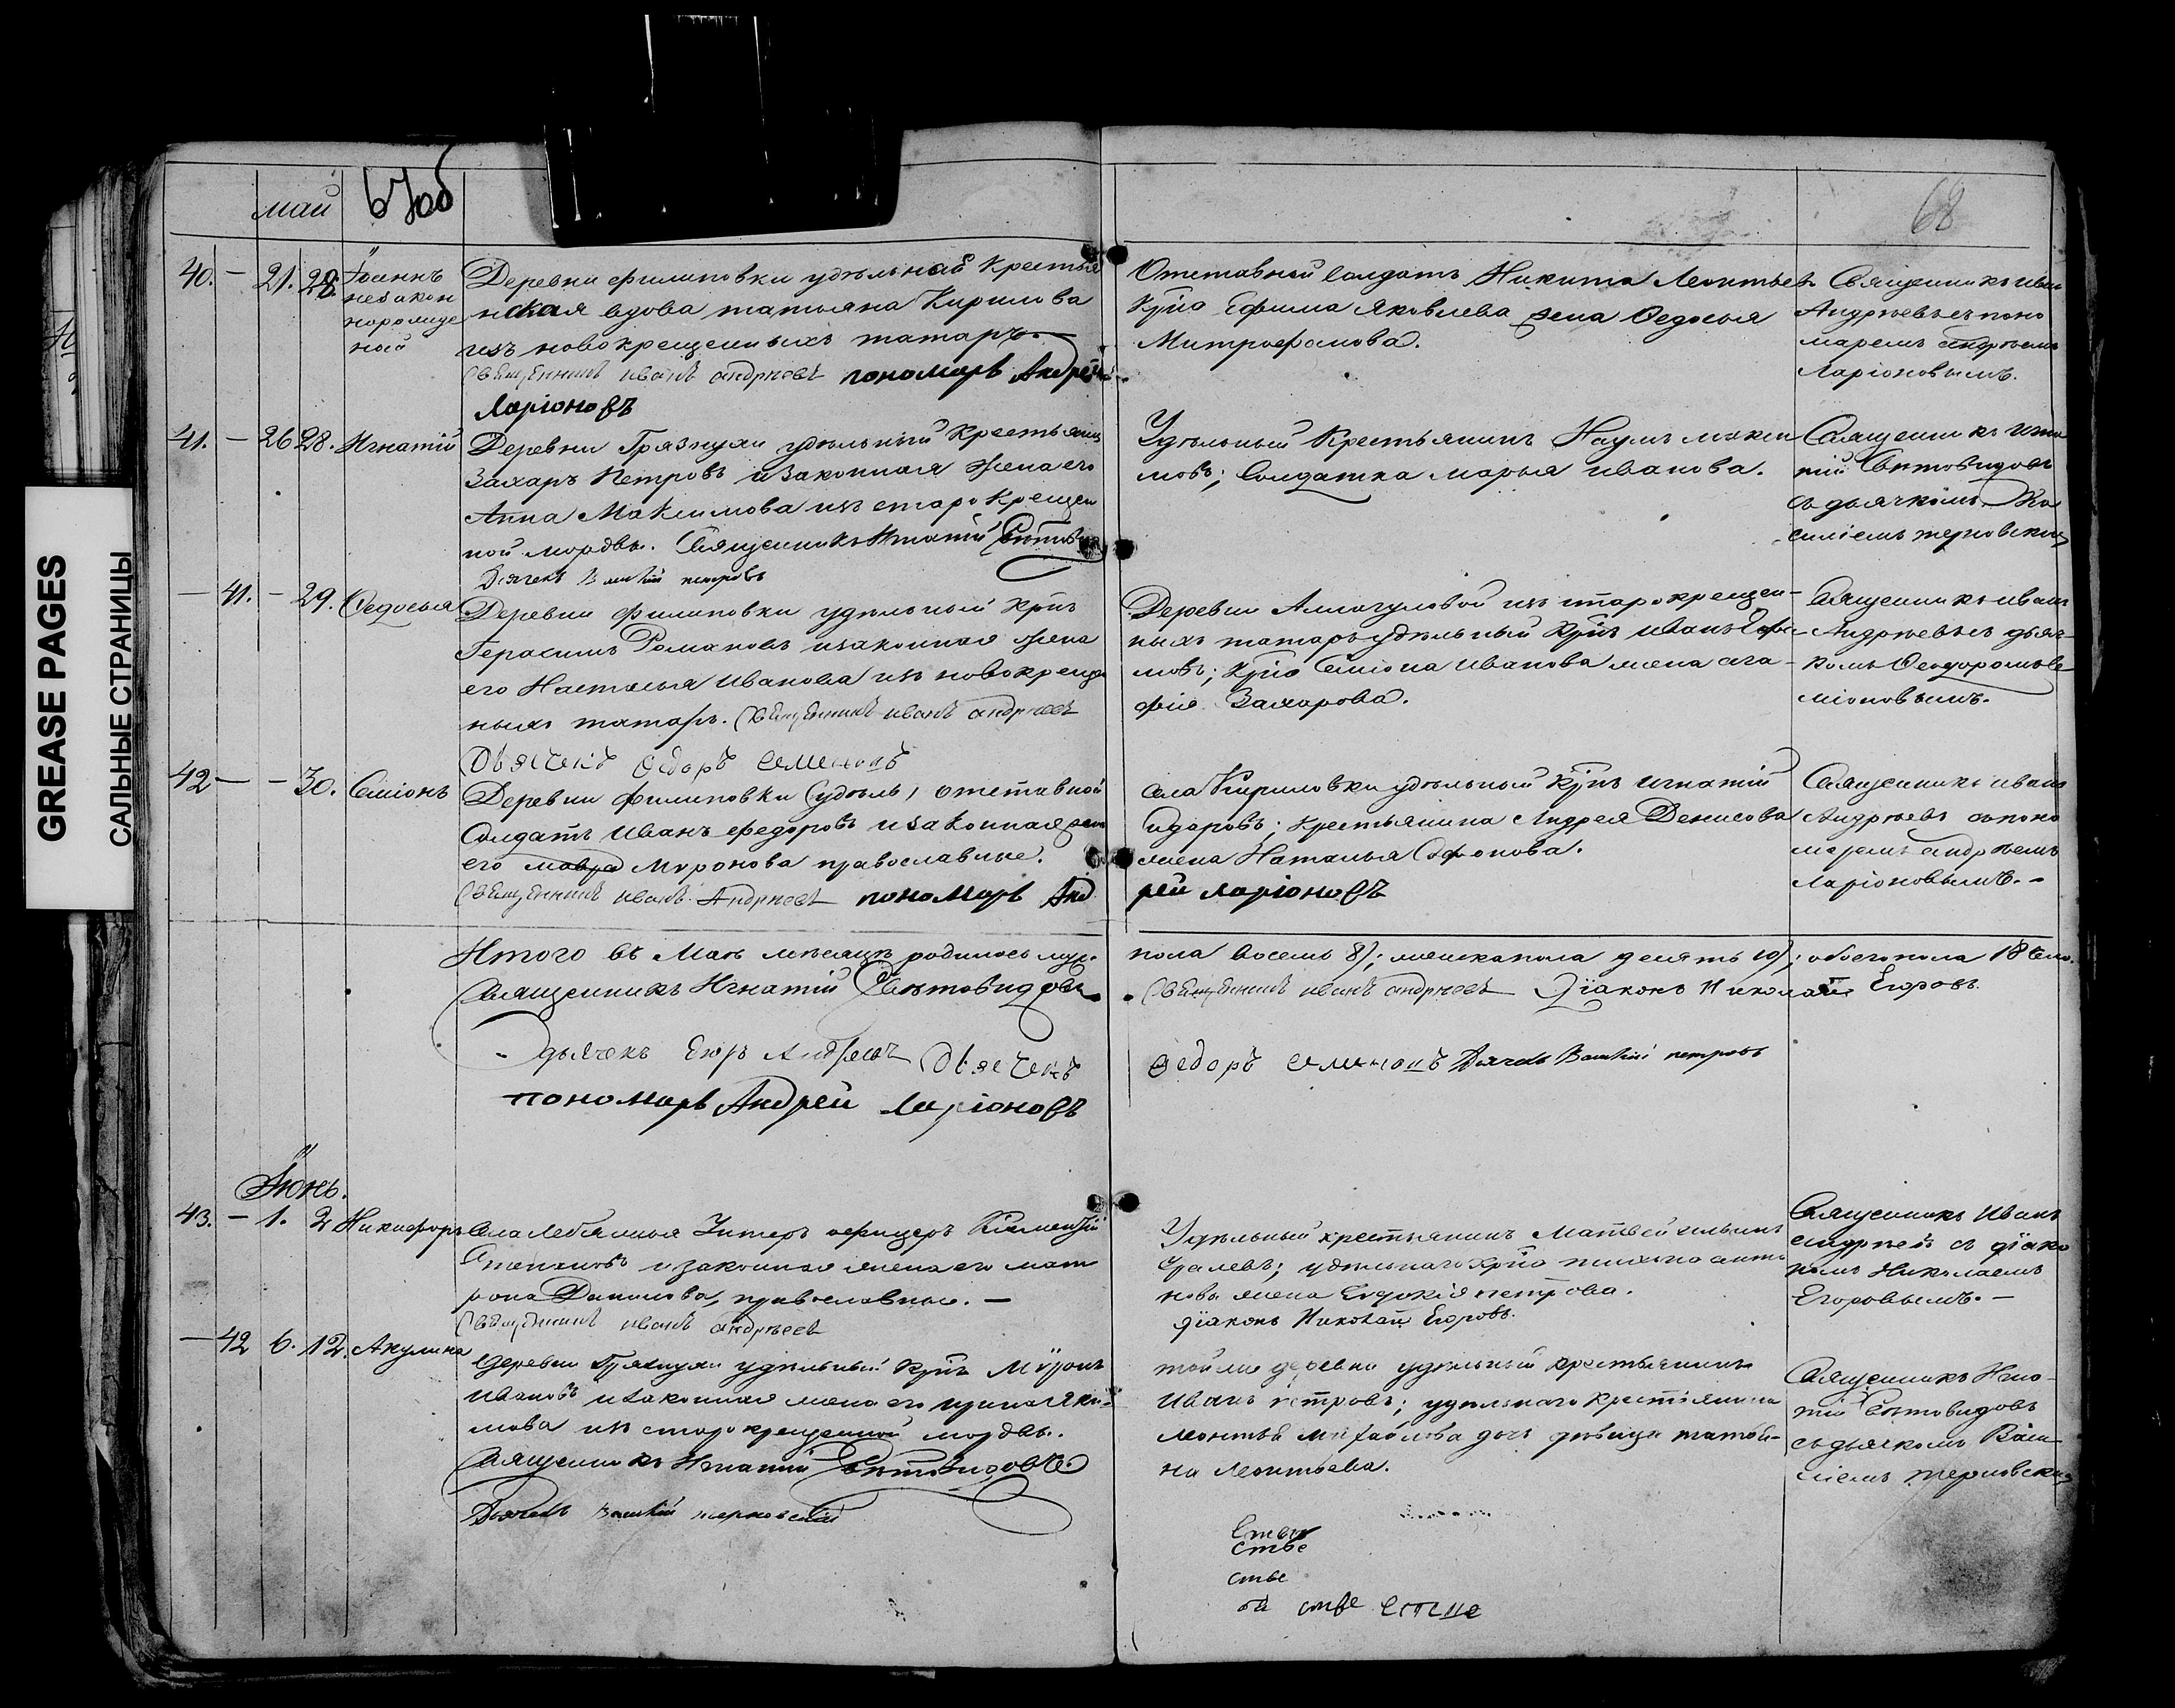 GREASE PAGES
САЛЬНЫЕ СТРАНИЦЫ
май
67об
68
40. — 21. 28. Іоаннъ
незакон
норожде
ный
Деревни Филиповки удѣльная Крестья
нская вдова татьяна Кирилова
изъ новокрещеныхъ татаръ.
Священникъ иванъ андрѣевъ пономарь Андрей
Ларіоновъ
Отставной Солдатъ Никита Леонтьевъ
Кр҃на Ефима Яковлева жена Ѳедосья
Митрофанова.
Священникъ иванъ
Андрѣевъ съ поно
маремъ андрѣемъ
Ларіоновымъ.
41. — 26 28. Игнатій
Деревни Грязнухи удѣльный Крестьянинъ
Захаръ Петровъ и законная жена его
Анна Максимова изъ старо Крещен
ной мордвы. Священникъ Игнатій
Дьячекъ Василій петровъ
Удѣльный Крестьянинъ Наумъ макси
мовъ; Солдатка марья иванова.
Священникъ игна
тій Свѣтовидовъ
съ дьячкомъ Ва
силіемъ терновскимъ
— 41. — 29. Ѳедосья
Деревни Филиповки удѣльный кр҃нъ
Герасимъ Романовъ и законная жена
его Настасья Иванова изъ новокреще
ныхъ татаръ. Священникъ иванъ андрѣевъ
Дьячекъ Ѳедоръ Семеновъ
Деревни изъ старокрещен-
ныхъ татаръ удѣльный Кр҃нъ иванъ
мовъ; кр҃на Симіона Иванова жена ага-
фія Захарова.
Священникъ иванъ
Андрѣевъ съ дьяч-
комъ Ѳеодоромъ Се
міоновымъ.
42 — — 30. Симіонъ
Деревни Филиповки (удѣль) отставной
Солдатъ Иванъ Федоровъ и законная жена
его мавра Миронова православные.
Священникъ иванъ Андрѣевъ пономарь Анд
рей Ларіоновъ
села Кириловки удѣльный кр҃нъ игнатій
Сидоровъ; крестьянина Андрея Денисова
жена Наталья Софонова.
Священникъ иванъ
Андрѣевъ съ поно
маремъ андрѣемъ
Ларіоновымъ. —
Итого въ Маѣ мѣсяцѣ родилось муж.
пола восемь 8); женска пола десять 10); обоего пола 18
Священникъ Игнатій Свѣтовидовъ
Священникъ иванъ андрѣевъ Діаконъ Николай Егоровъ
дьячекъ Егоръ Андреевъ Дьячекъ
Ѳедоръ Семеновъ Дьячекъ Василій петровъ
пономарь Андрей Ларіоновъ
Іюнь.
43. — 1. 2 Никифоръ
Села Унтеръ офицеръ
Степановъ и законная жена его мат
рона Данилова, православные. —
Священникъ иванъ андрѣевъ
Удѣльный крестьянинъ Матвей
удѣльнаго кр҃на
нова жена Евдокія петрова.
діаконъ Николай Егоровъ.
Священникъ Иванъ
андрѣевъ съ діако
номъ Николаемъ
Егоровымъ. —
— 42 6. 12. Акулина
Деревни Грязнухи удѣльный кр҃нъ Миронъ
Ивановъ и законная жена его
мова изъ старокрещенной мордвы.
Священникъ Игнатій Свѣтовидовъ
Дьячекъ Василій терновскій
той же деревни удѣльный крестьянинъ
Иванъ петровъ; удѣльнаго крестьянина
Леонтья михайлова дочь дѣвица татья-
на Леонтьева.
Священникъ Игна-
тій Свѣтовидовъ
съ дьячкомъ Васи-
ліемъ терновскимъ
стве
стве